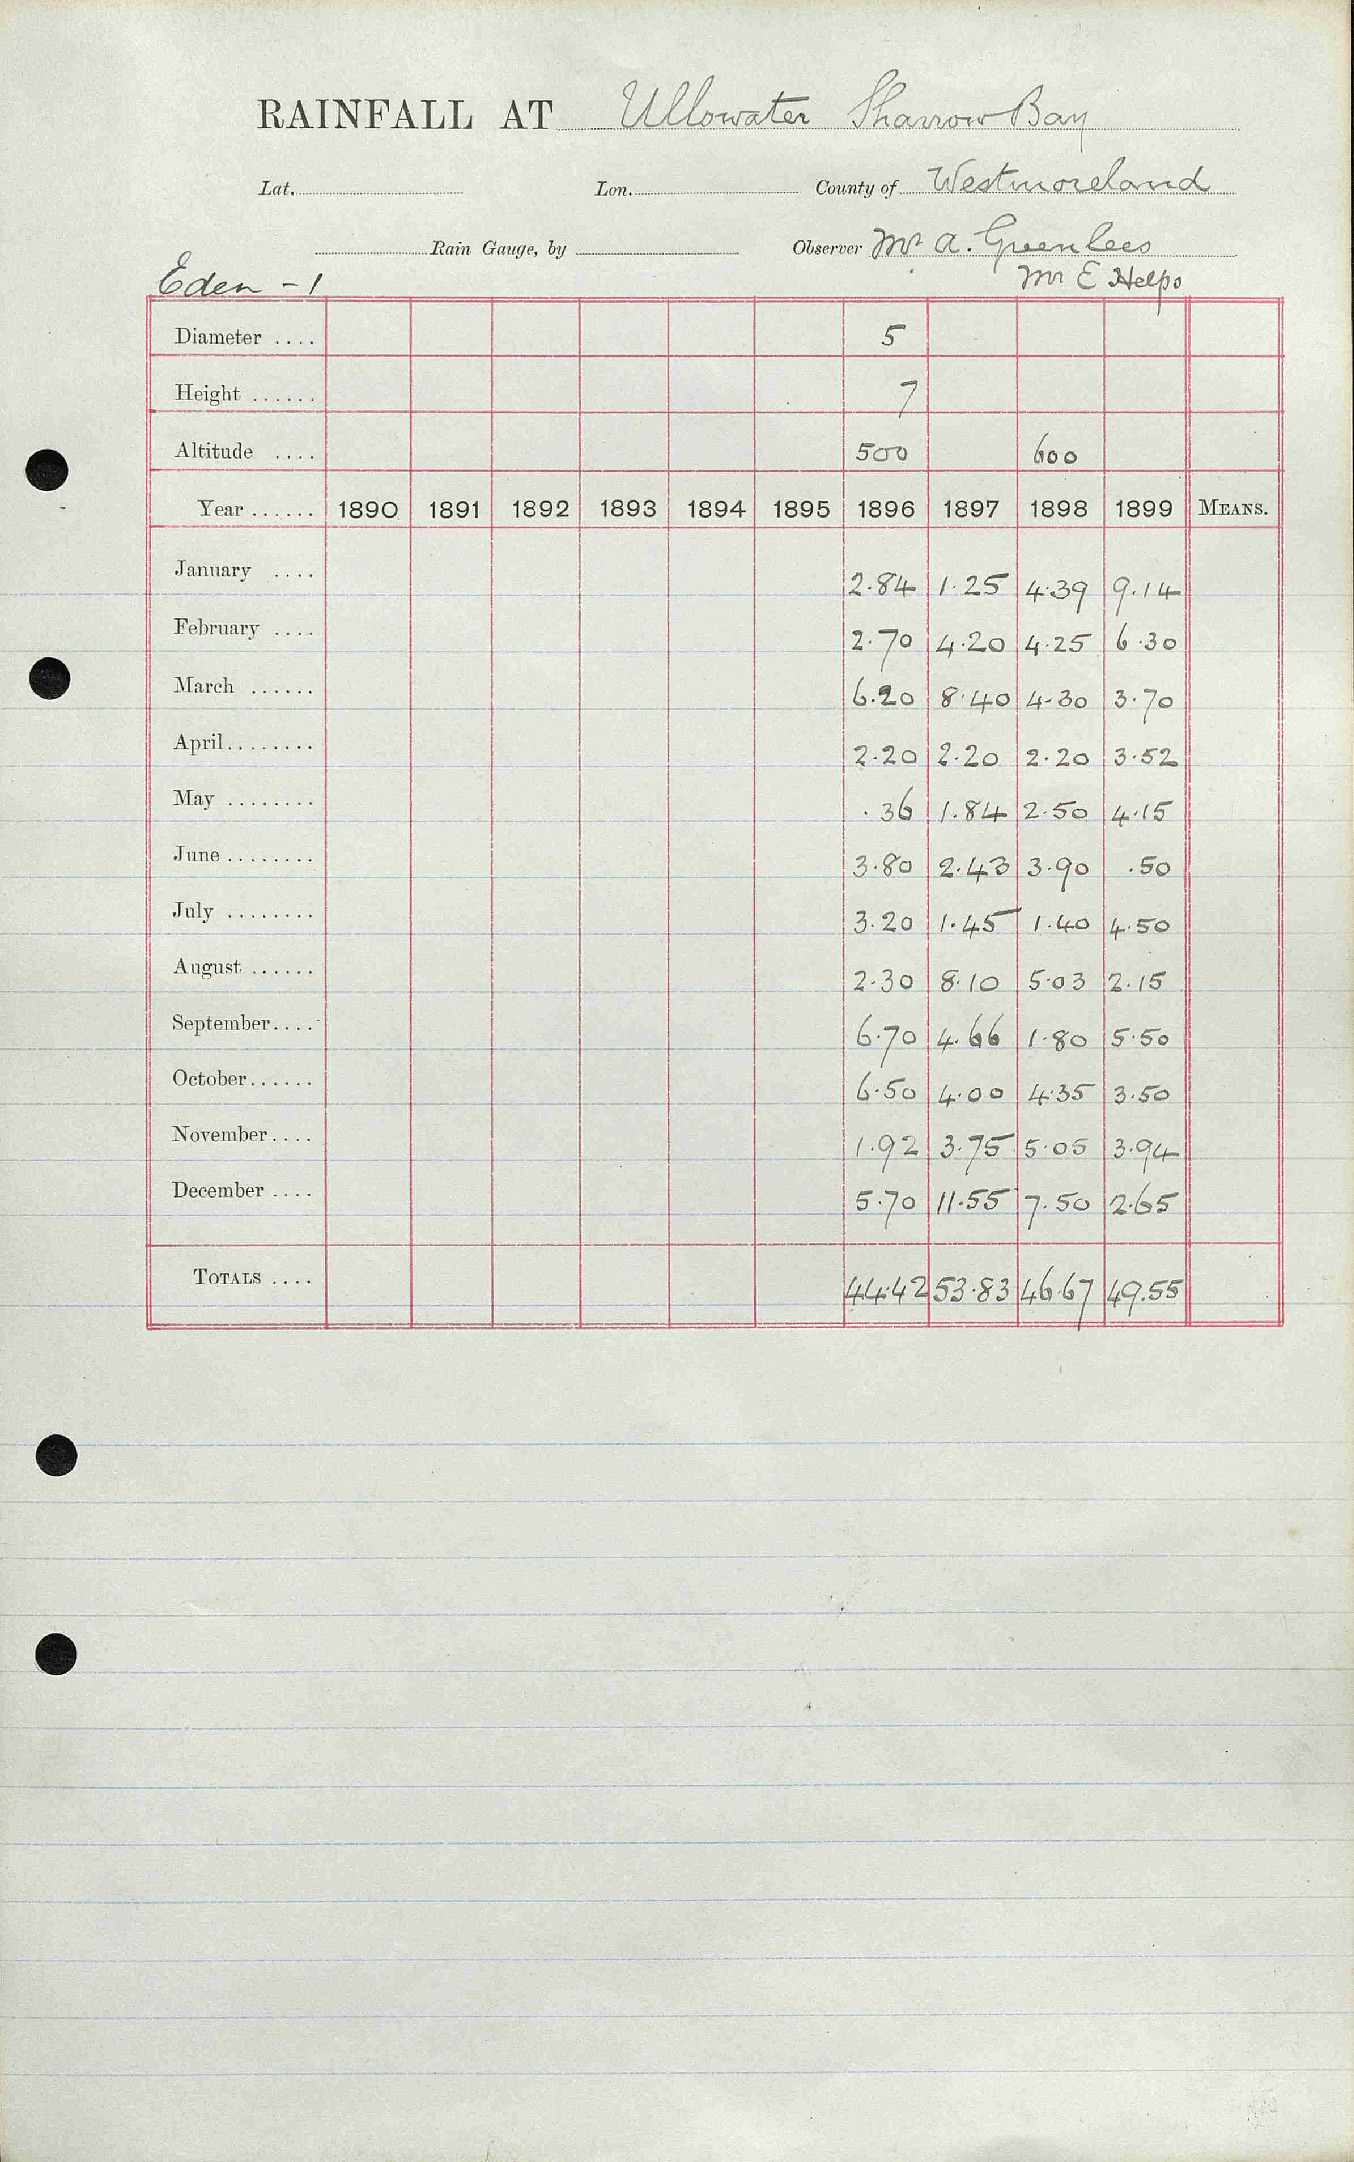 RAINFALL AT Ullswater Sharrow Bay
Lat. Lon. County of Westmoreland
Rain Gauge, by Observer Mr A. Greenlees
Eden - 1 Mr E Helps
Diameter .... 5
Height ...... 7
Altitude .... 500 600
Year ...... 1890 1891 1892 1893 1894 1895 1896 1897 1898 1899 MEANS.
January .... 2.84 1.25 4.39 9.14
February .... 2.70 4.20 4.25 6.30
March ...... 6.20 8.40 4.30 3.70
April........ 2.20 2.20 2.20 3.52
May ........ .36 1.84 2.50 4.15
June ........ 3.80 2.43 3.90 .50
July ........ 3.20 1.45 1.40 4.50
August ...... 2.30 8.10 5.03 2.15
September.... 6.70 4.66 1.80 5.50
October...... 6.50 4.00 4.35 3.50
November.... 1.92 3.75 5.05 3.94
December .... 5.70 11.55 7.50 2.65
TOTALS .... 44.42 53.83 46.67 49.55